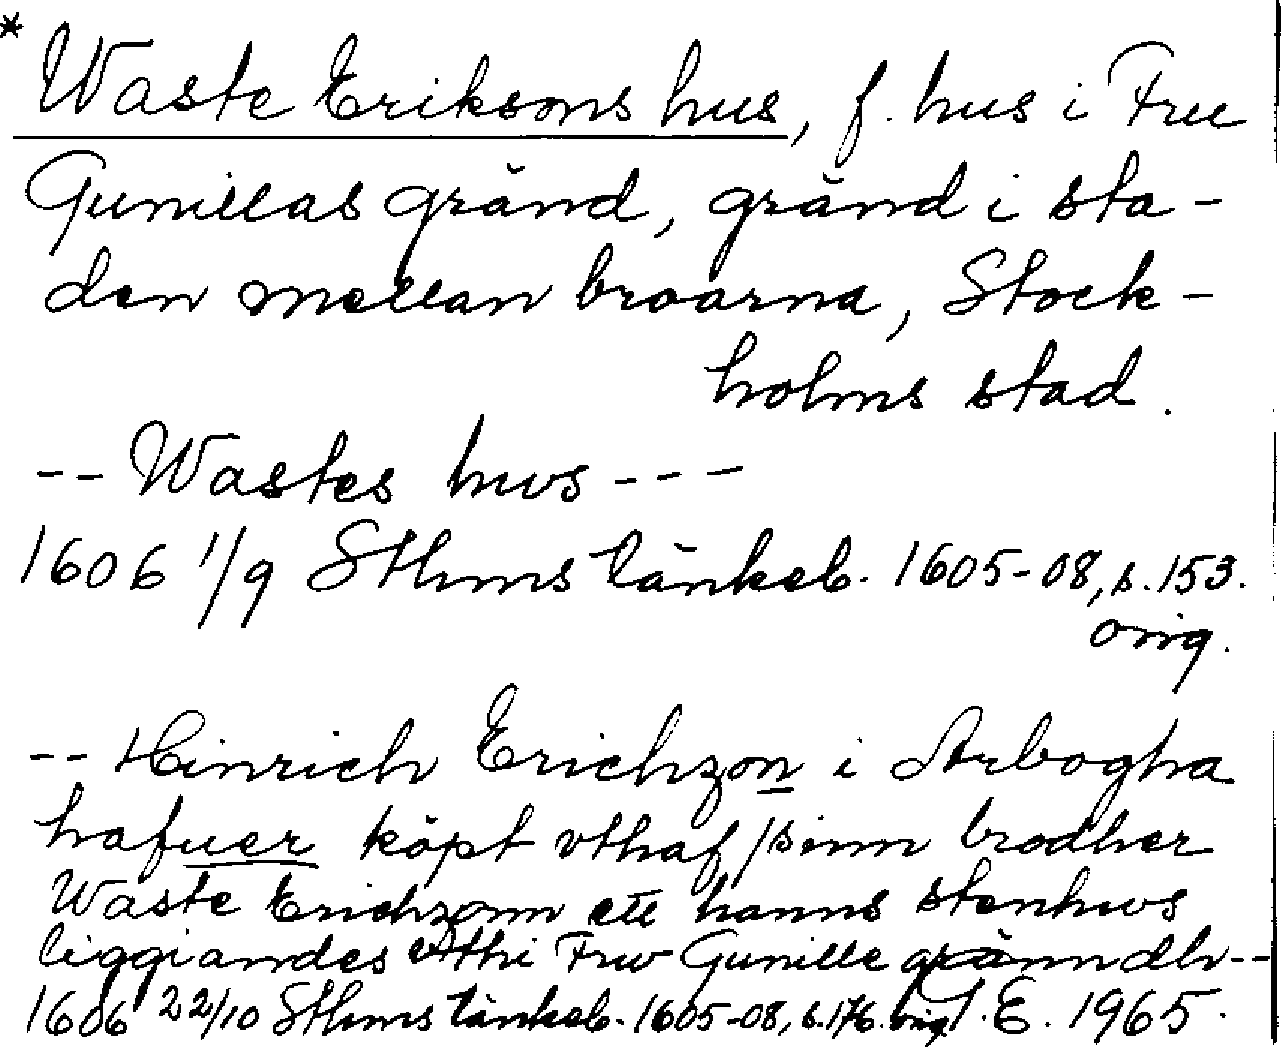 * Waste Eriksons hus, f. hus i Fru
Gunillas gränd, gränd i sta-
den mellan broarna, Stock-
holms stad.
-- Wastes hws ---
1606 1/9 Sthms tänkeb. 1605-08, s. 153.
orig.
-- Hinrich Erichzon i Arbogha
hafuer köpt vthaf /sinn brodher
Waste Erichzonn ett hanns stenhws
liggiandes vthi Frw Gunille gränndh --
1606 22/10 Sthms tänkeb. 1605-08, s. 176. orig. I. E. 1965.